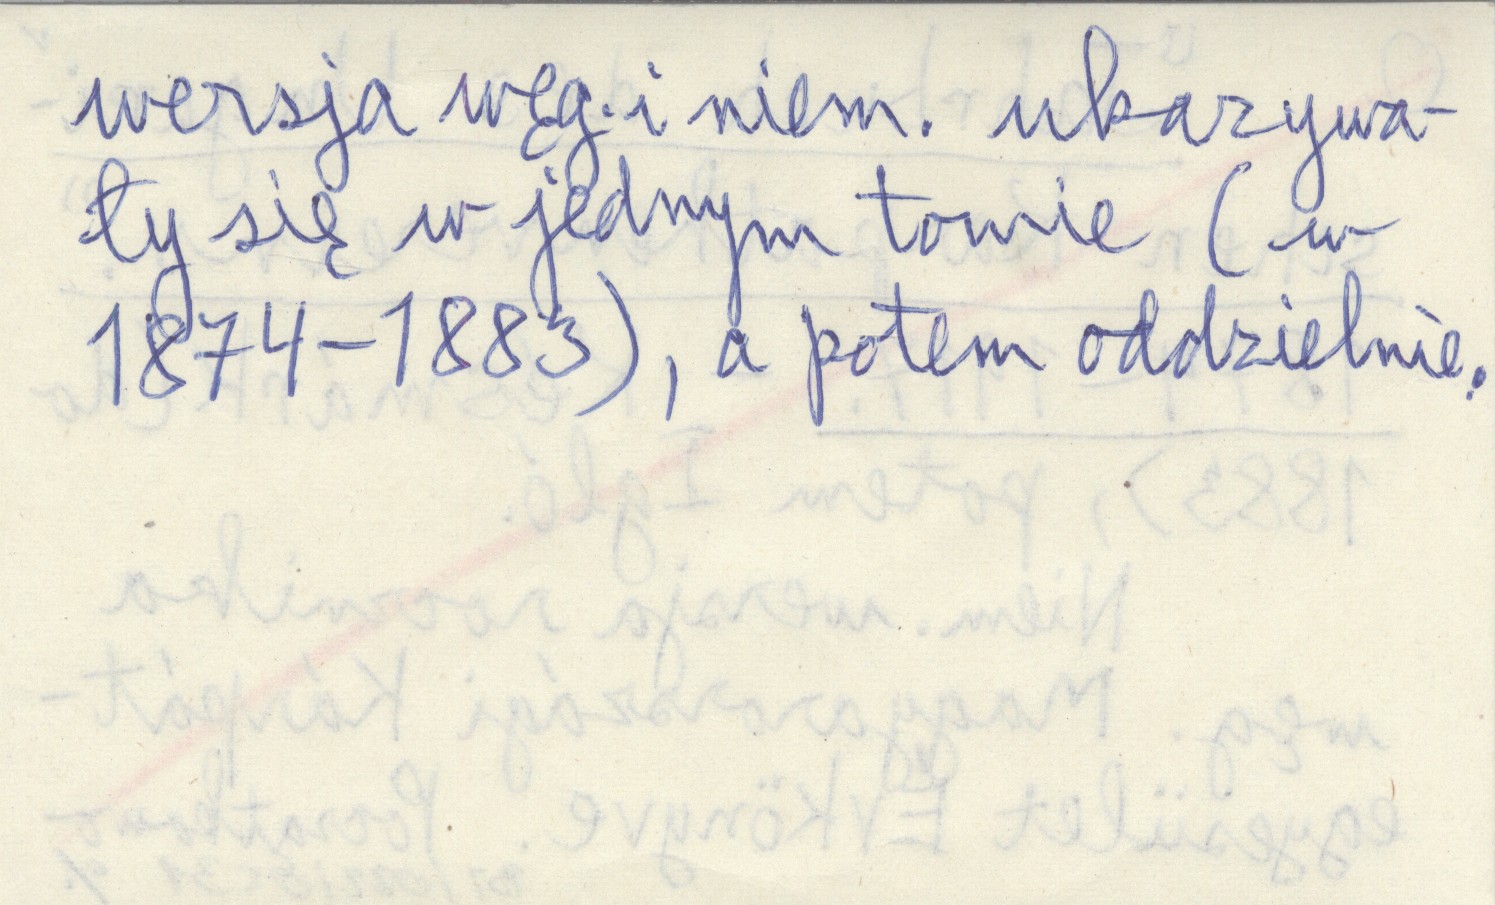 wersja węg. i niem. ukazywa-
ły się w jednym tomie (w
1874-1883), a potem oddzielnie.